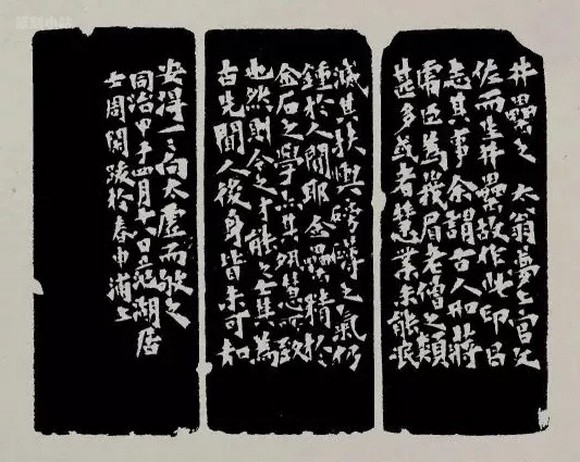 井罍之太翁夢上官父
佐而生井罍故作此印
志其事余謂古人如蔣
虎臣為峨眉老僧之類
甚多或者慧業未能泯
滅其扶輿磅礴之氣仍
鍾於人間耶金罍精於
金石之學亦其夙慧所致
也然則今之才能之士其為
古先聞人後身皆未可知
安得一〻向太虛而敂之
同治甲子四月六日范湖居
士周閑跋於春申浦上